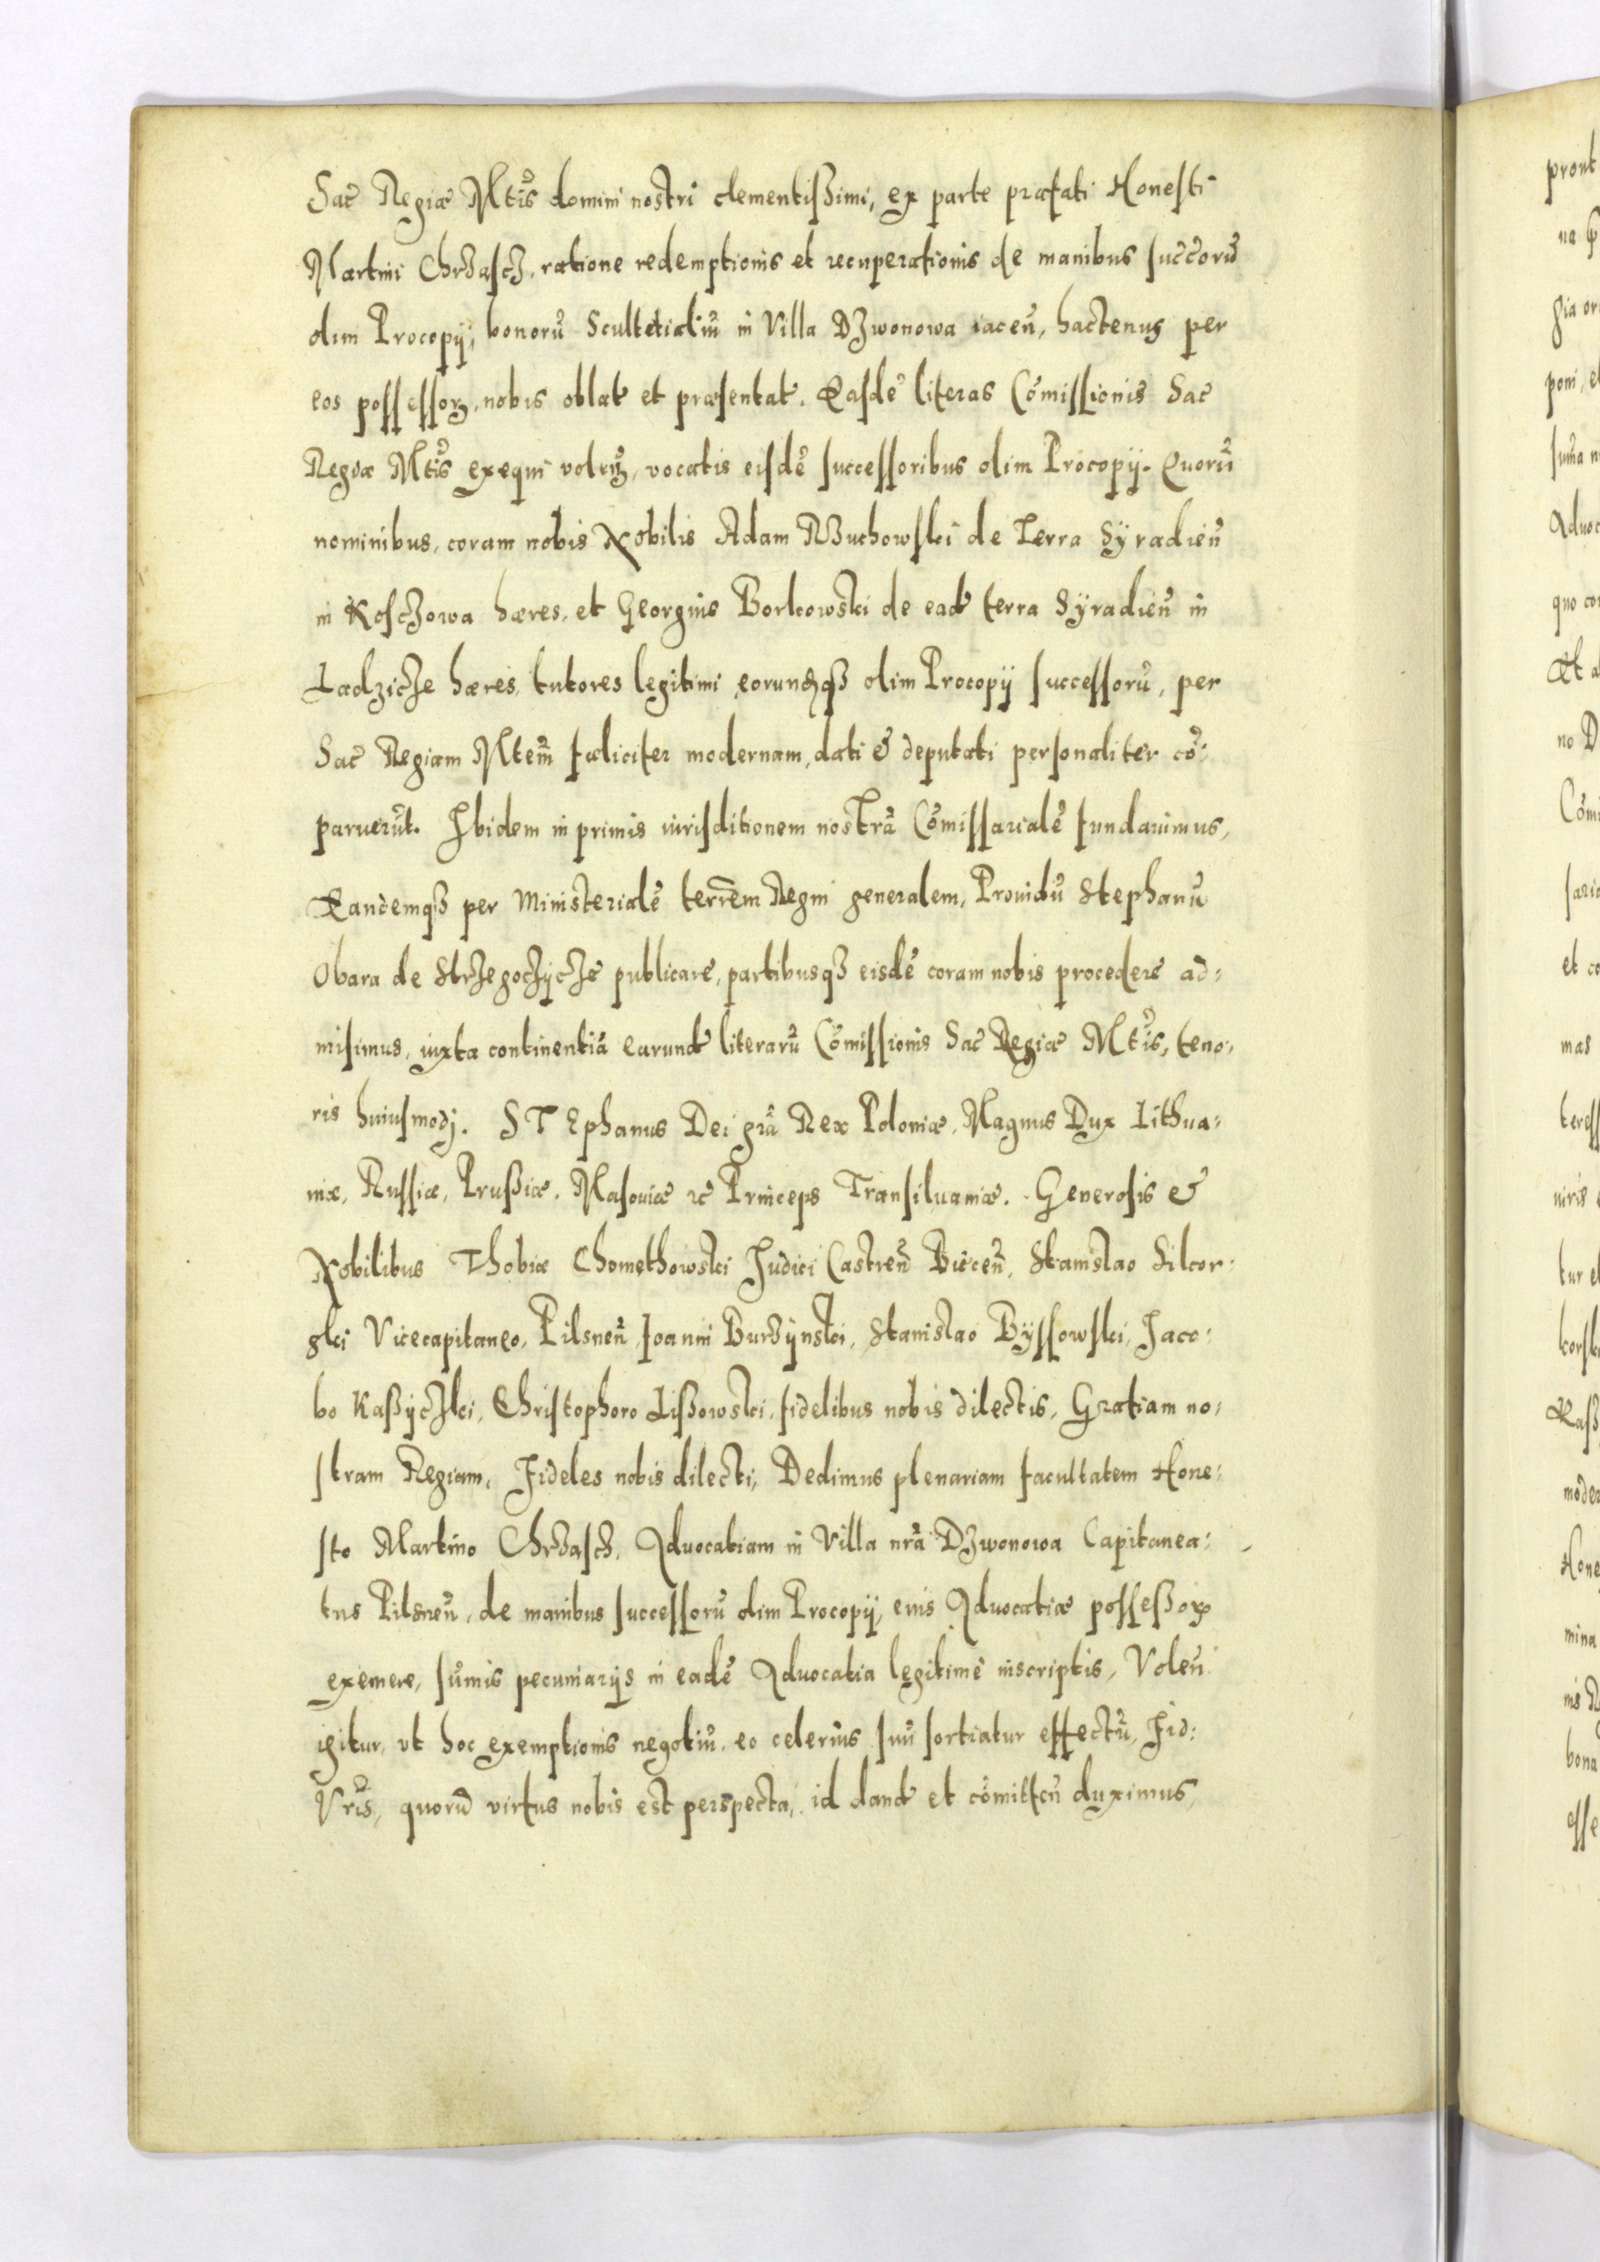 Sac Regiæ Mtis domini nostri clementißimi, ex parte præfati Honesti
Martini Chrząscz, ratione redemptionis et recuperationis de manibus succorũ
olim Procopÿ, bonorũ Scultetialiũ in Villa Dzwonowa iaceñ, hactenus per
eos possessorꝝ, nobis oblat et præsentat. Easdẽ literas Cõmissionis Sac
Regiæ Mtis exequi volentꝭ, vocatis eisdẽ successoribus olim Procopÿ. Quorũ
nominibus, coram nobis Nobilis Adam Wuchowski de Terra Syradieñ
in Kosczowa hæres, et Georgius Borkowski de ead terra Sÿradieñ in
Ladzicze hæres, tutores legitimi, eorundqꝫ olim Procopÿ successorũ, per
Sac Regiam Mtem fæliciter modernam, dati & deputati personaliter cõ:
paruerũt. Ibidem in primis iurisditionem nostrã Cõmissarialẽ fundauimus,
Eandemqꝫ per Ministerialẽ terrẽm Regni generalem, Prouidũ Stephanũ
Obara de Strzegoczÿcze publicarẽ, partibusqꝫ eisdẽ coram nobis procederẽ ad:
misimus, iuxta continentiã earund literarũ Cõmissionis Sac Regiæ Mtis, teno:
ris huiusmodj. STEphanus Dei grã Rex Poloniæ, Magnus Dux Lithua:
niæ, Russiæ, Prußiæ, Masouiæ ꝛc Princeps Transiluaniæ. Generosis &
Nobilibus Thobiæ Chomethowski Judici Castreñ Bieceñ, Stanislao Sikor:
ski Vicecapitaneo, Pilsneñ, Joanni Burzÿnski, Stanislao Bÿssowski, Jaco:
bo Kaßÿczki, Christophoro Lißowski, fidelibus nobis dilectis, Gratiam no:
stram Regiam, Fideles nobis dilecti, Dedimus plenariam facultatem Hone:
sto Martino Chrząscz, Aduocatiam in Villa nrã Dzwonowa Capitanea:
tus Pilsneñ, de manibus successorũ olim Procopÿ, eius Aduocatiæ posseßorꝝ
eximere, sum̃is pecuniarÿs in eadẽ Aduocatia legitimè inscriptis, Voleñ
igitur, vt hoc exemptionis negotiũ, eo celerius suũ sortiatur effectũ, Fid:
Vris, quorũ virtus nobis est perspecta, id dand et cõmitteñ duximus,